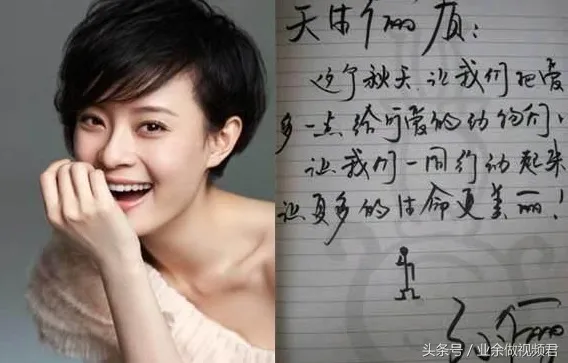 这个秋天让我们把爱
多一点给可爱的动物们,
让我们一同行动起来
让更多的生命更美丽!
头条号 / 业余做视频君